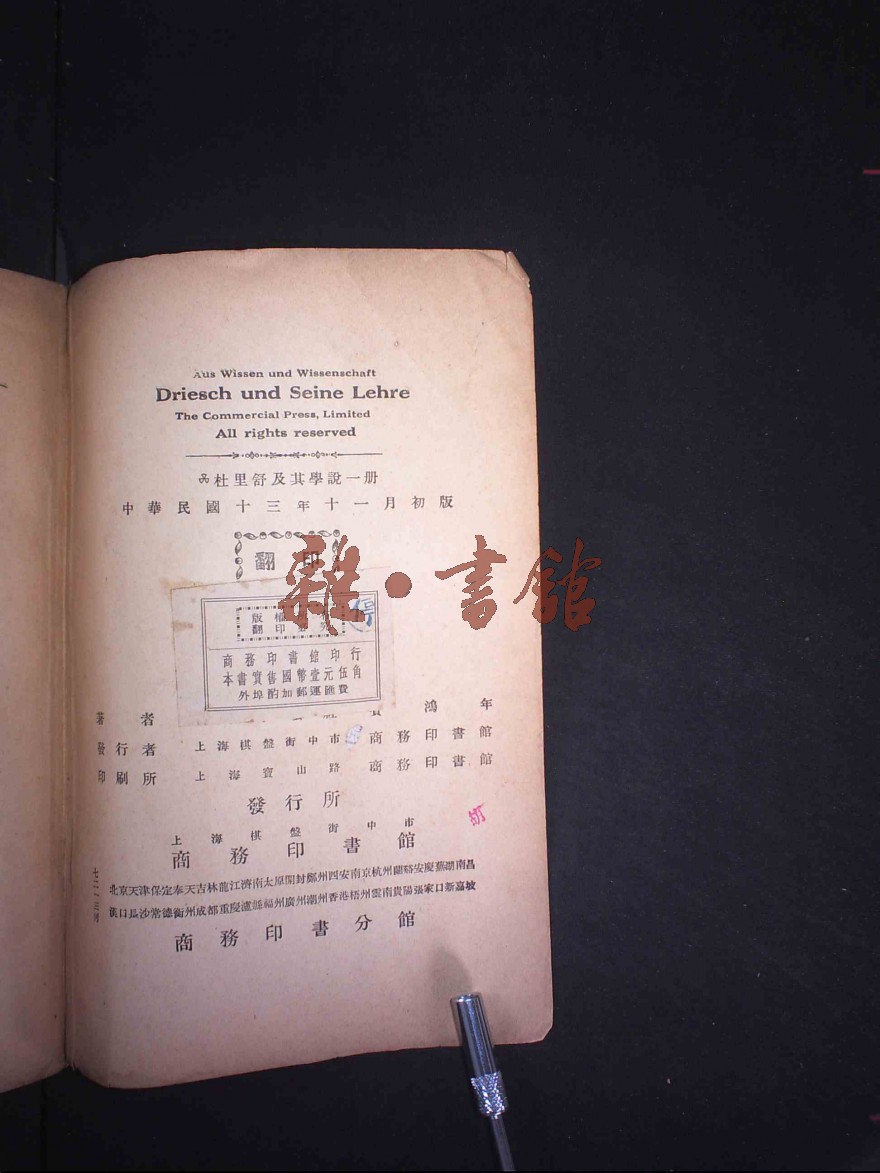 Aus Wissen und Wissenschaft
Driesch und Seine Lehre
The Commercial Press, Limited
All rights reserved
杜里舒及其學說一册
中華民國十三年十一月初版
翻印
雜·書館
版權
翻印
商務印書館印行
本書實售國幣壹元伍角
外埠酌加郵運匯費
著者 鴻年
發行者 上海棋盤街中市 商務印書館
印刷所 上海寶山路 商務印書館
發行所
上海棋盤街中市
商務印書館
北京天津保定奉天吉林龍江濟南太原開封鄭州西安南京杭州蘭谿安慶蕪湖南昌
漢口長沙常德衡州成都重慶瀘縣福州廣州潮州香港梧州雲南貴陽張家口新嘉坡
商務印書分館